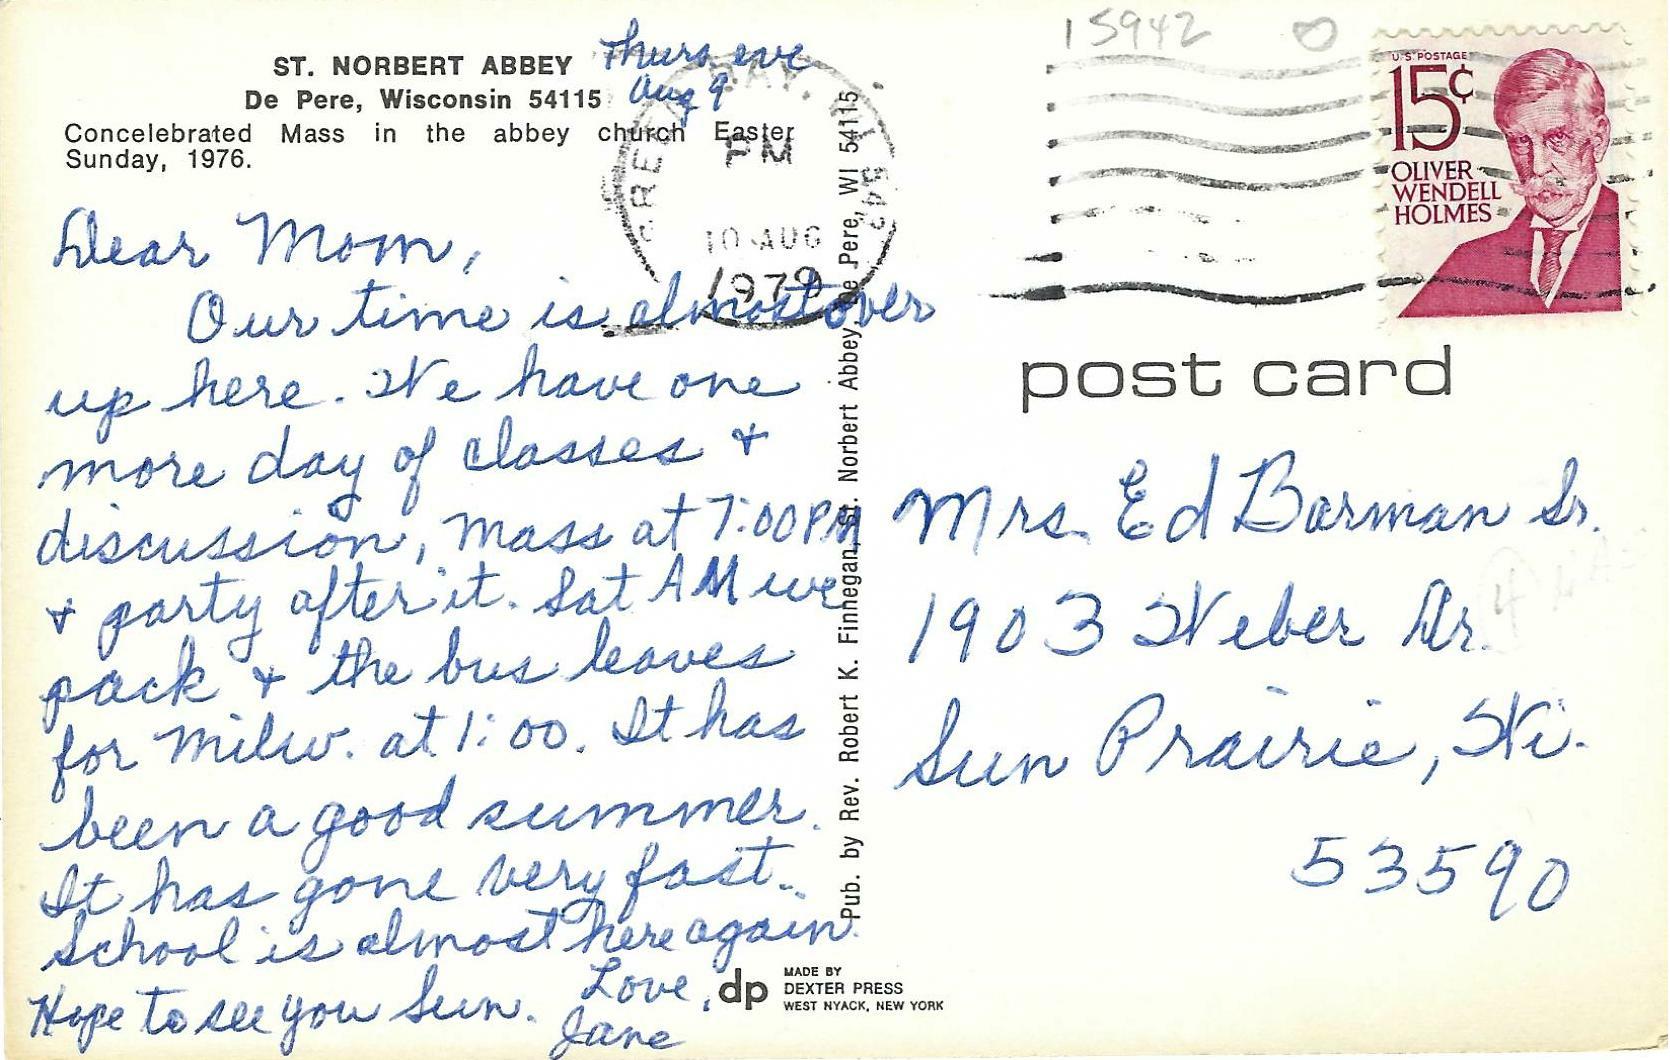 ST. NORBERT ABBEY
De Pere, Wisconsin 54115
Concelebrated Mass in the abbey church Easter
Sunday, 1976.
Thurs eve
Aug 9
Dear Mom,
Our time is almost over
up here. We have one
more day of classes &
discussion, Mass at 7:00 PM
& party after it. Sat AM we
pack & the bus leaves
for Milw. at 1:00. It has
been a good summer.
It has gone very fast.
School is almost here again.
Hope to see you Sun.
Love,
Jane
Pub. by Rev. Robert K. Finnegan, St. Norbert Abbey, De Pere, WI 54115
dp
MADE BY
DEXTER PRESS
WEST NYACK, NEW YORK
PM
10 AUG
1979
15942
U.S. POSTAGE
15¢
OLIVER
WENDELL
HOLMES
post card
Mrs. Ed Barman Sr.
1903 Weber Dr.
Sun Prairie, Wi.
53590